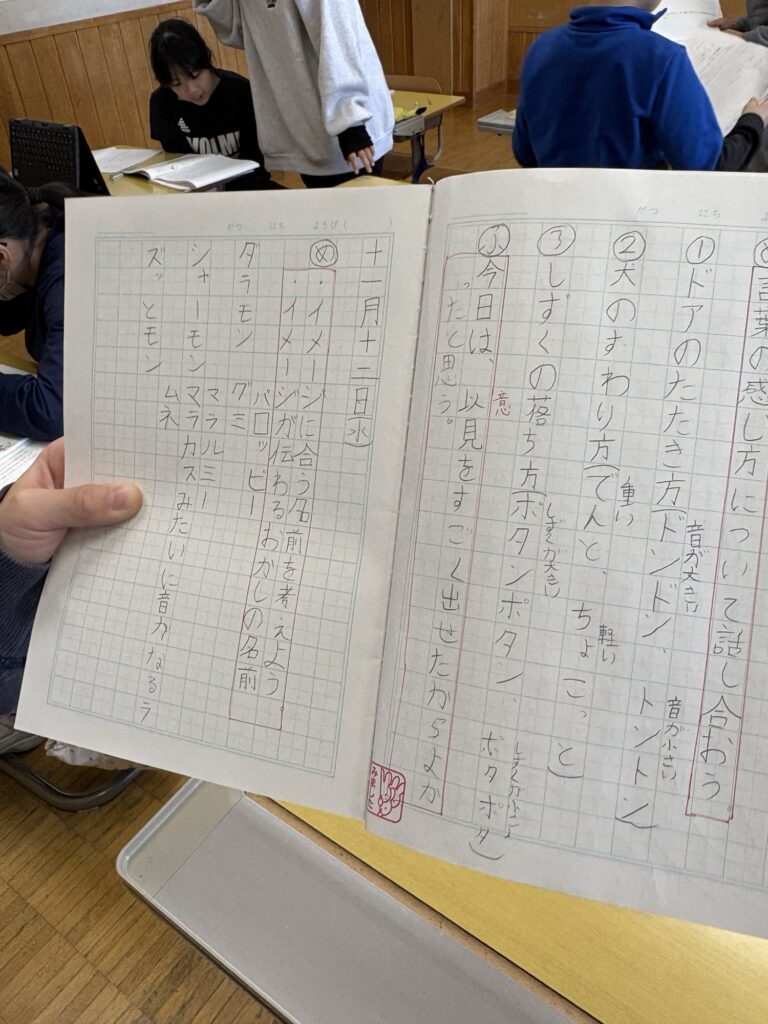 言葉の感じ方について話し合おう
①ドアのたたき方(ドンドン、トントン)
音が大きい
音が小さい
②犬のすわり方(でんと、ちょこっと)
重い
軽い
③しずくの落ち方(ポタンポタン、ポタポタ)
しずくが大きい
しずくが小さい
ふ今日は、以見をすごく出せたからよか
意
ったと思う。
みました
がつ にち
がつ にち ようび( )
十一月十二日(水)
め・イメージに合う名前を考えよう。
・イメージが伝わるおかしの名前
パロッピー
ダラモン グミ
マラルミー
シャーモン マラカスみたいに音がなるラ
ムネ
ズッとモン